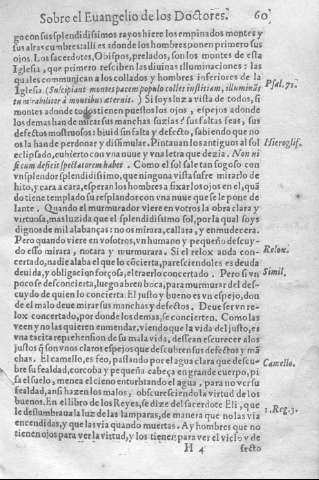 Sobre el Euangelio de los Doctores. 60
go con sus splendidissimos rayos hiere los empinados montes y
sus altas cumbres: alli es adonde los hombres ponen primero sus
ojos. Los sacerdotes, Obispos, prelados, son los montes de esta
Iglesia, que primero resciben las diuinas illuminaciones: las
quales communican a los collados y hombres inferiores de la
Iglesia. (Suscipiant montes pacem populo & colles iustitiam, illuminās
tu mirabiliter à montibus æternis.) Si soys luz a vista de todos, si
montes adonde todos tienen puestos los ojos, espejos adonde
los demas han de mirar sus manchas suzias: sus faltas feas, sus
defectos mostruosos: biuid sin falta y defecto, sabiendo que no
os la han de perdonar y dissimular. Pintauan los antiguos al sol
eclipsado, cubierto con vna nuue y vna letra que dezia. Non ni
si cum deficit spectatorem habet. Como el sol sale tan fogoso con
vn splendor splendidissimo, que ninguna vista sufre mirarlo de
hito, y cara a cara, esperan los hombres a fixar los ojos en el, quā
do tiene templado su resplandor con vna nuue que se le pone de
lante. Quando el murmurador viere en votros la obra clara y
virtuosa, mas luzida que el splendidissimo sol, por la qual soys
dignos de mil alabanças: no os mirara, callara, y enmudecera.
Pero quando viere en vosotros, vn humano y pequeño descuy-
do esso mirara, notara y murmurara. Si el relox anda con-
certado, nadie alaba el que lo cōcierta, paresciendoles es deuda
deuida, y obligacion forçosa, el traerlo concertado. Pero si vn
poco se desconcierta, luego abren boca, para murmurar del des-
cuydo de quien lo concierta. El justo y bueno es vn espejo, don
de el malo deue mirar sus manchas y defectos. Deue ser vn re-
lox concertado, por donde los demas, se concierten. Como las
veen y no las quieren enmendar, viendo que la vida del justo, es
vna tacita reprehension de su mala vida, dessean escurecer a los
justos q̄ son vnos claros espejos que descubren sus defectos y mā
chas. El camello, es feo, passando por el agua clara que descu-
bre su fealdad, corcoba y pequeña cabeça en grande cuerpo, pi
sa el suelo, menea el cieno enturbiando el agua, para no ver su
fealdad, ansi hazen los malos, obscuresciendo la virtud de los
buenos. En el libro de los Reyes, se dize del sacerdote Eli, que
le deslumbraua la luz de las lamparas, de manera que no las via
encendidas, y que las via quando muertas. Ay hombres que no
tienen ojos para ver la virtud, y los tienen para ver el vicio y de
H 4 fecto
Psal. 71.
Hieroglif.
Relox.
Simil.
Camello.
1. Reg. 3.